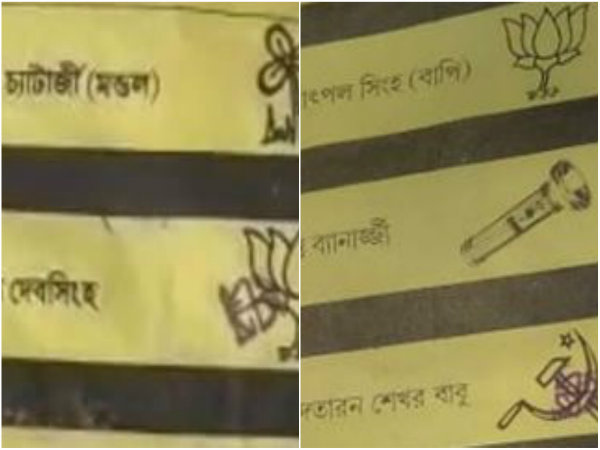 চ্যাটার্জী (মন্ডল)
দেবসিংহ
ৎপল সিংহ (বাপি)
ব্যানার্জ্জী
দতারন শেখর বাবু